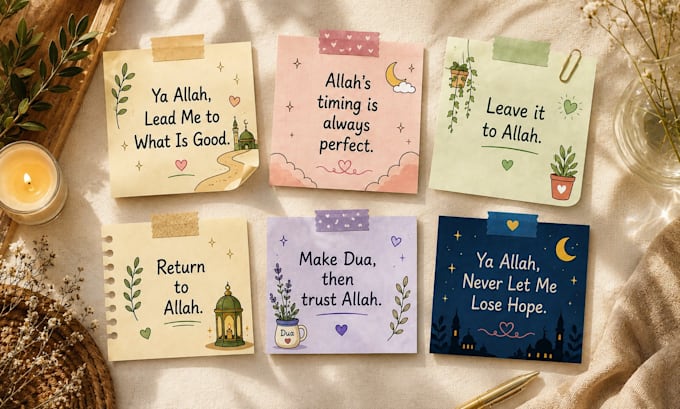 Ya Allah,
Lead Me to
What Is Good.
Allah's
timing is
always
perfect.
Leave it
to Allah.
Return
to
Allah.
Make Dua,
then
trust Allah.
Dua
Ya Allah,
Never Let Me
Lose Hope.